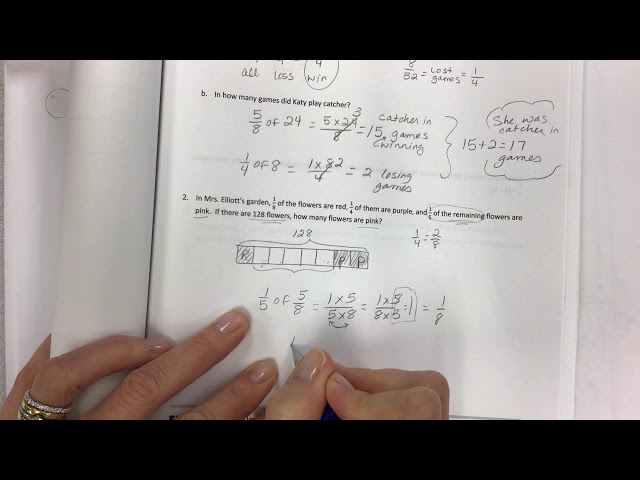 all loss win
8/32 = lost games = 1/4
b. In how many games did Katy play catcher?
5/8 of 24 = 5 x 24/8 = 15 games
3
catcher in
winning
1/4 of 8 = 1 x 8/4 = 2 losing games
2
15 + 2 = 17 games
She was catcher in
2. In Mrs. Elliott's garden, 1/8 of the flowers are red, 1/4 of them are purple, and 1/5 of the remaining flowers are
pink. If there are 128 flowers, how many flowers are pink?
128
1/4 = 2/8
R P P
1/5 of 5/8 = 1 x 5/5 x 8 = 1 x 5/8 x 5 = 1 = 1/8